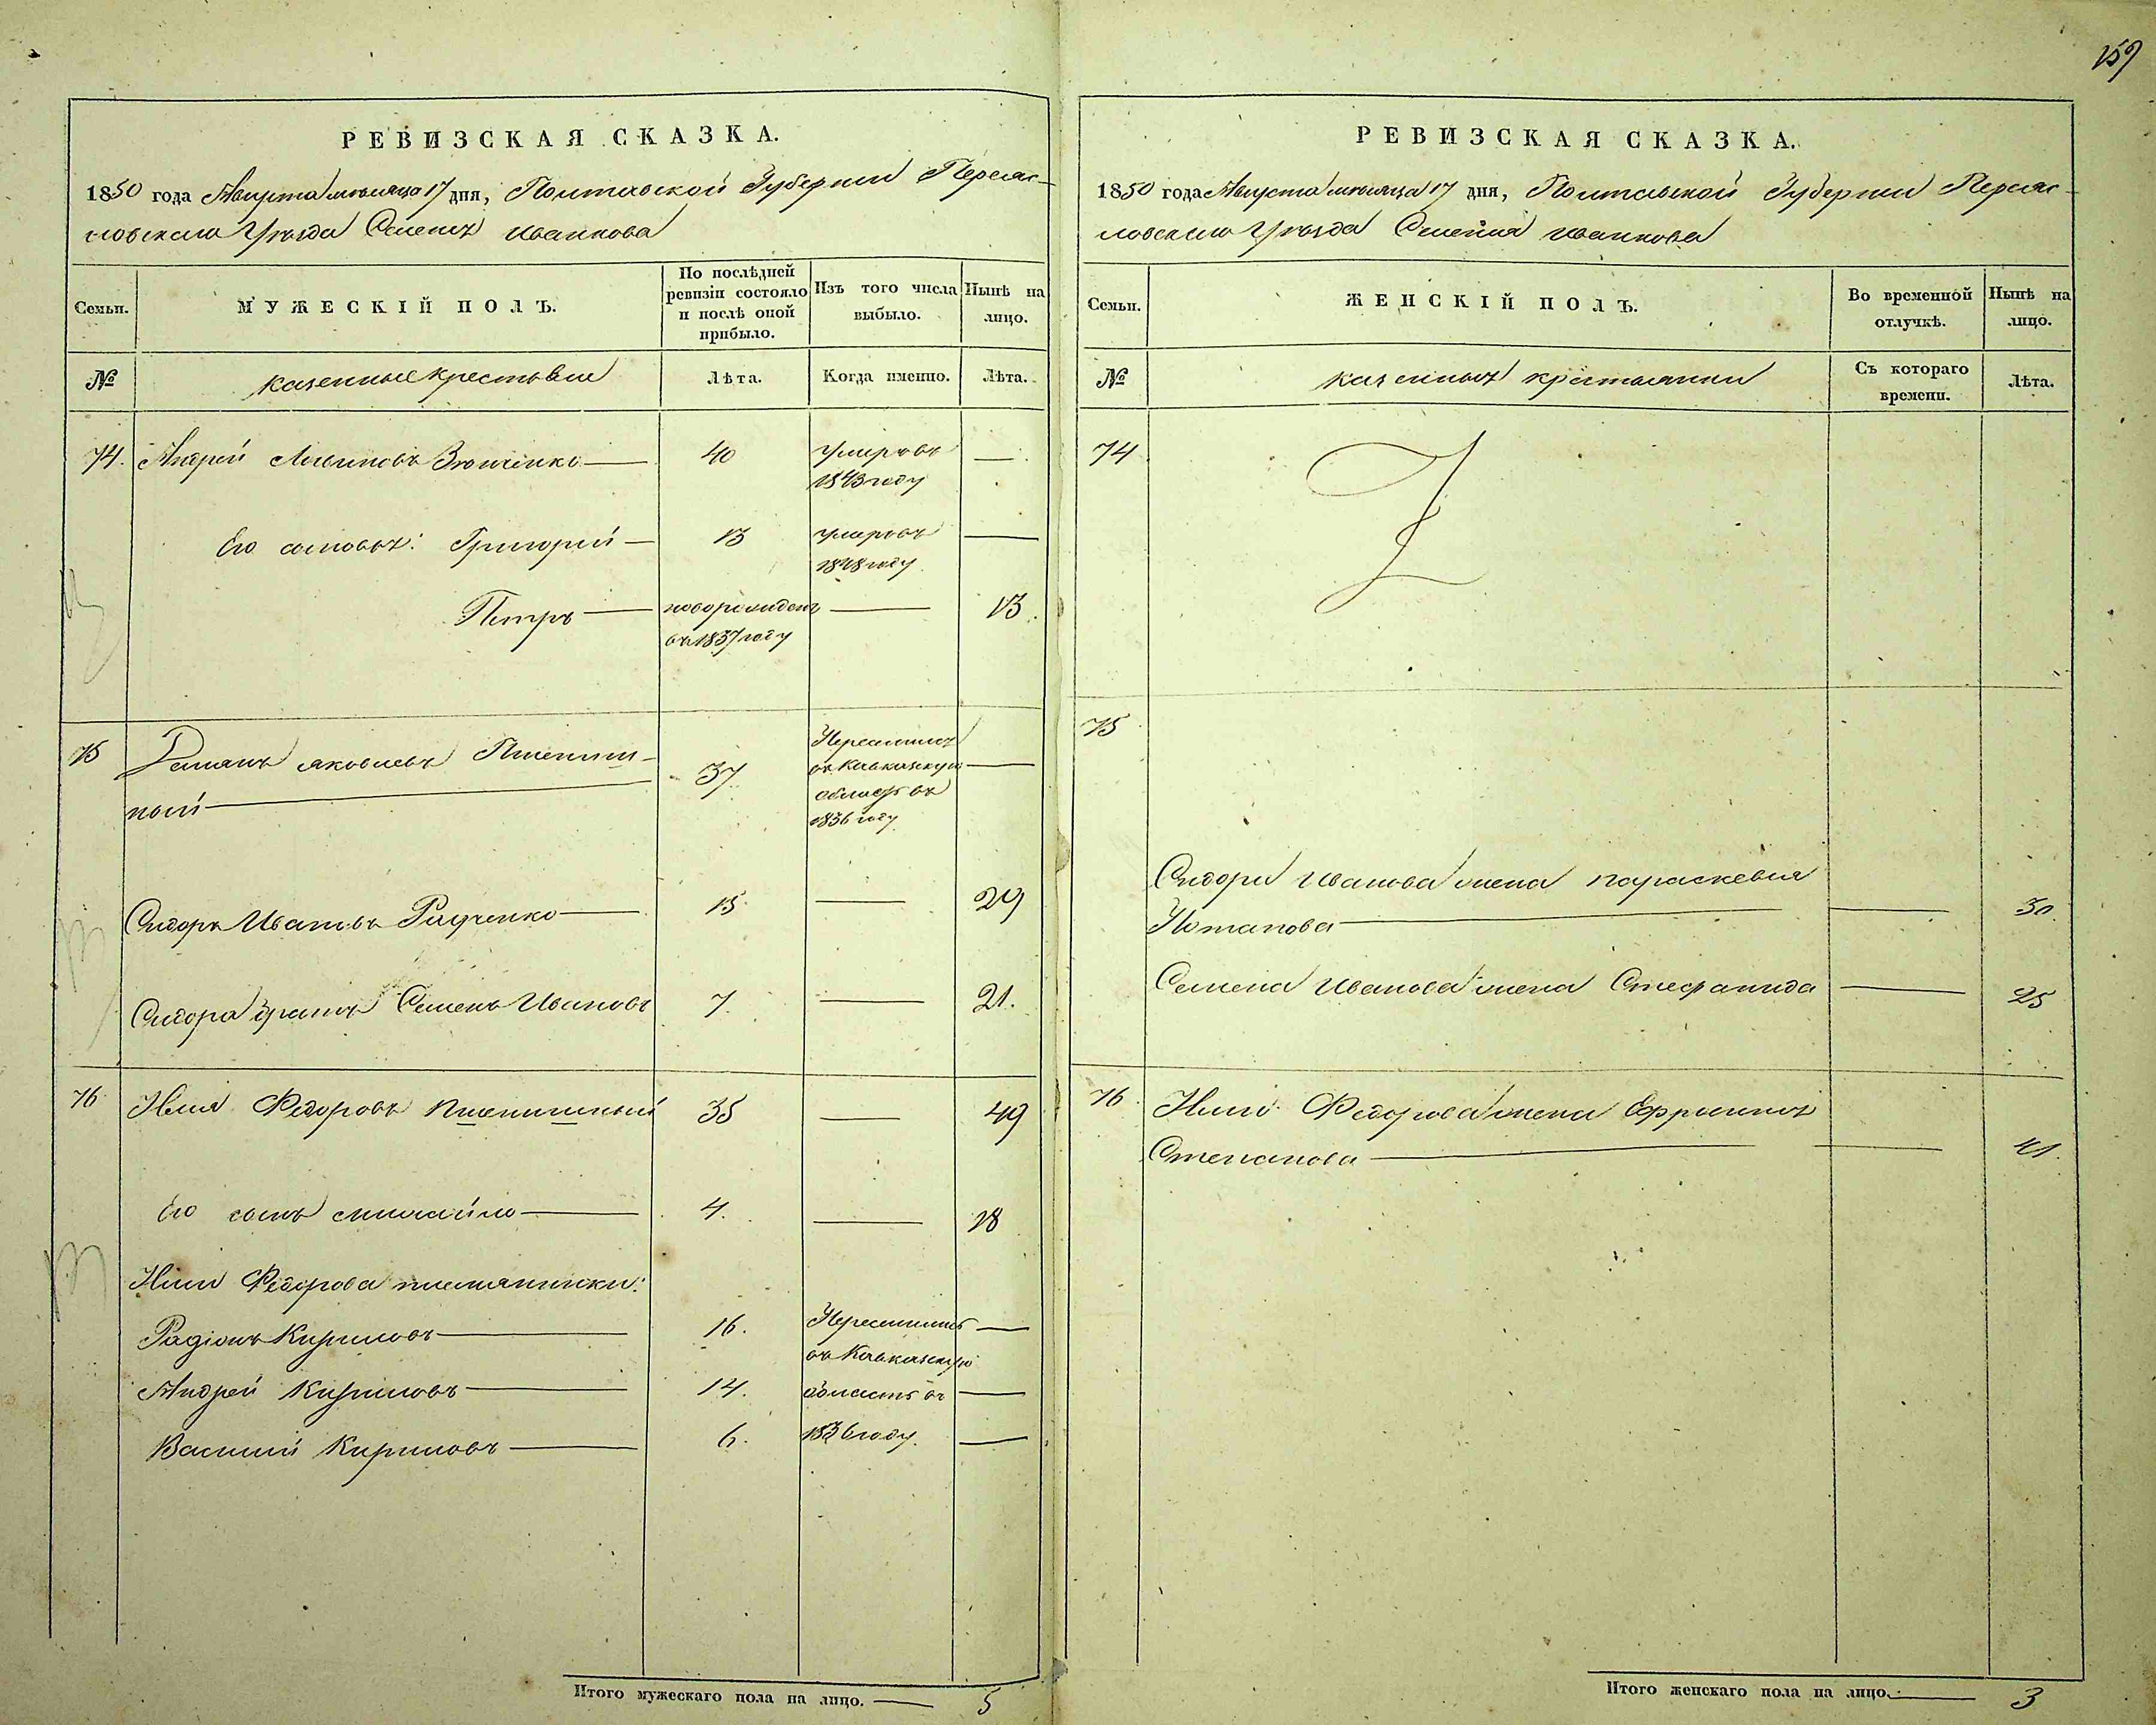 159
РЕВИЗСКАЯ СКАЗКА.
1850 года Августа месяца 17 дня, Полтавской Губернии Переяс-
ловского Уезда Селения Иванкова
Семьи.
МУЖЕСКІЙ ПОЛЪ.
По послѣдней ревизіи состояло и послѣ оной прибыло.
Изъ того числа выбыло.
Нынѣ на лицо.
№
казенные крестьяне
Лѣта.
Когда именно.
Лѣта.
74. Андрей Логиновъ 40 умеръ въ —
1843 году
Его сыновья: Григорий — 13 умеръ въ —
1848 году
Петръ — новорожденъ — 13.
въ 1837 году
75 Романъ Яковлевъ Пшенич-
ный — 37 Переселился
въ Кавказкую —
область въ
1836 году
Сидоръ Ивановъ Радченко — 15 — 29
Сидора братъ Семенъ Ивановъ 7. — 21.
76 Илия Федоровъ Пшеничный 35 — 49
Его сынъ Михайло — 4. — 18
Илии Федорова племянники:
Радіонъ Кириловъ — 16. Переселились —
въ Кавказкую
Андрей Кириловъ — 14. область въ —
Василий Кириловъ — 6. 1836 году. —
Итого мужескаго пола на лицо. — 5
РЕВИЗСКАЯ СКАЗКА.
1850 года Августа месяца 17 дня, Полтавской Губернии Переяс-
ловского Уезда Селения Иванкова
Семьи.
ЖЕНСКІЙ ПОЛЪ.
Во временной отлучкѣ.
Нынѣ на лицо.
№
казенные крестьянки
Съ котораго времени.
Лѣта.
74
75
Сидора Иванова жена Параскевия
Потапова — — 30
Семена Иванова жена Стефанида — 25
76. Илии Федорова жена Ефросиния
Степанова — — 41.
Итого женскаго пола на лицо. — 3